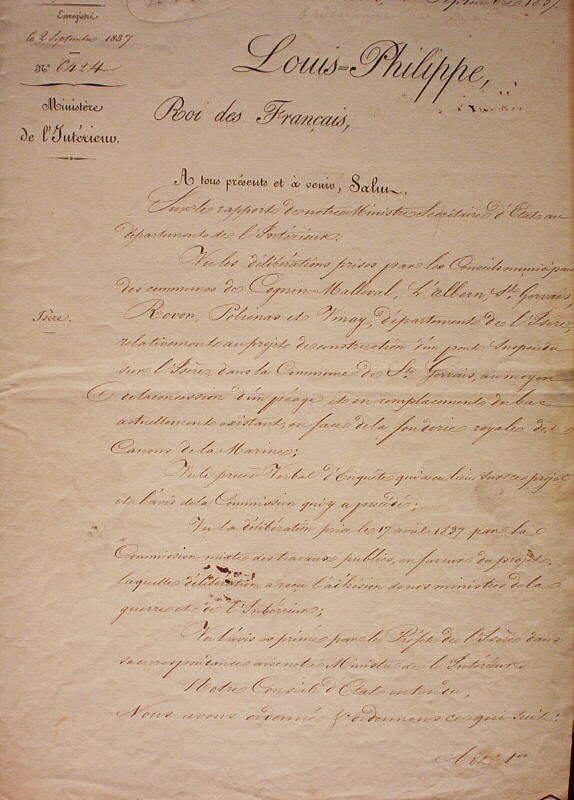 Enregistré
le 2 Septembre 1837
N° 6424
Ministère
de l'Intérieur.
Isère.
Louis=Philippe,
Roi des Français,
A tous présents et à venir, Salut.
Sur le rapport de notre Ministre Secrétaire d'Etat au
département de l'Intérieur.
Vu les délibérations prises par les Conseils municipaux
des communes de Cognin-Malleval, L'Albenc, St. Gervais
Rovon, Polienas et Vinay, département de l'Isère,
relativement au projet de construction d'un pont suspendu
sur l'Isère, dans la Commune de St. Gervais, au moyen
de la concession d'un péage et en remplacement du bac
actuellement existant, en face de la fonderie royale des
Canons de la Marine;
Vu le procès-Verbal d'Enquête qui a eu lieu sur ce projet
et l'avis de la Commission qui y a procédé;
Vu la délibération prise le 17 avril 1837 par la
Commission mixte des travaux publics, en faveur du projet,
laquelle délibération a reçu l'adhésion de nos ministres de la
guerre et de l'Intérieur;
Vu l'avis exprimé par le Préfet de l'Isère dans
sa correspondance avec notre Ministre de l'Intérieur
Notre Conseil d'Etat entendu,
Nous avons ordonné & ordonnons ce qui suit:
Art. 1er